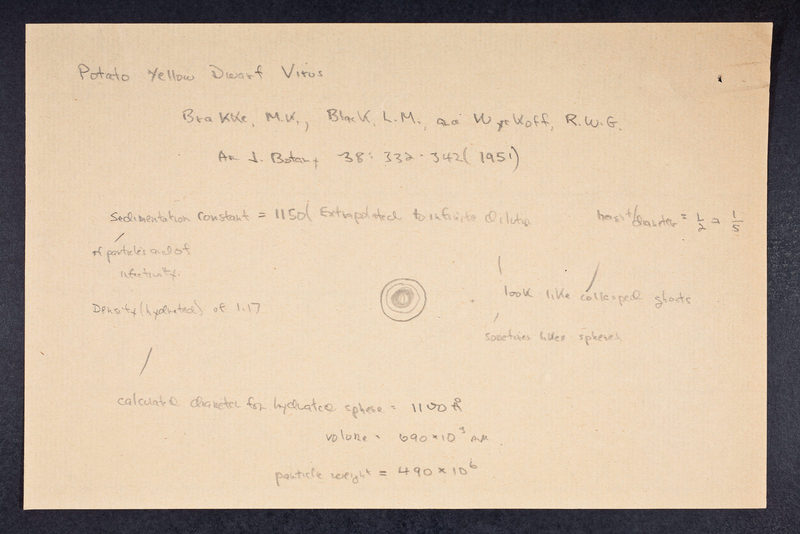 Potato Yellow Dwarf Virus
Brakke, M.K., Black, L.M., and Wyckoff, R.W.G.
Am J. Botany 38: 332-342 (1951)
Sedimentation constant = 1150 (Extrapolated to infinite dilution
height/diameter = 1/2 - 1/5
of particles and of
infectivity.
look like collapsed ghosts
Density (hydrated) of 1.17
sometimes like spheres
calculated diameter for hydrated sphere = 1100 Å
volume = 690 × 10³
particle weight = 490 × 10⁶